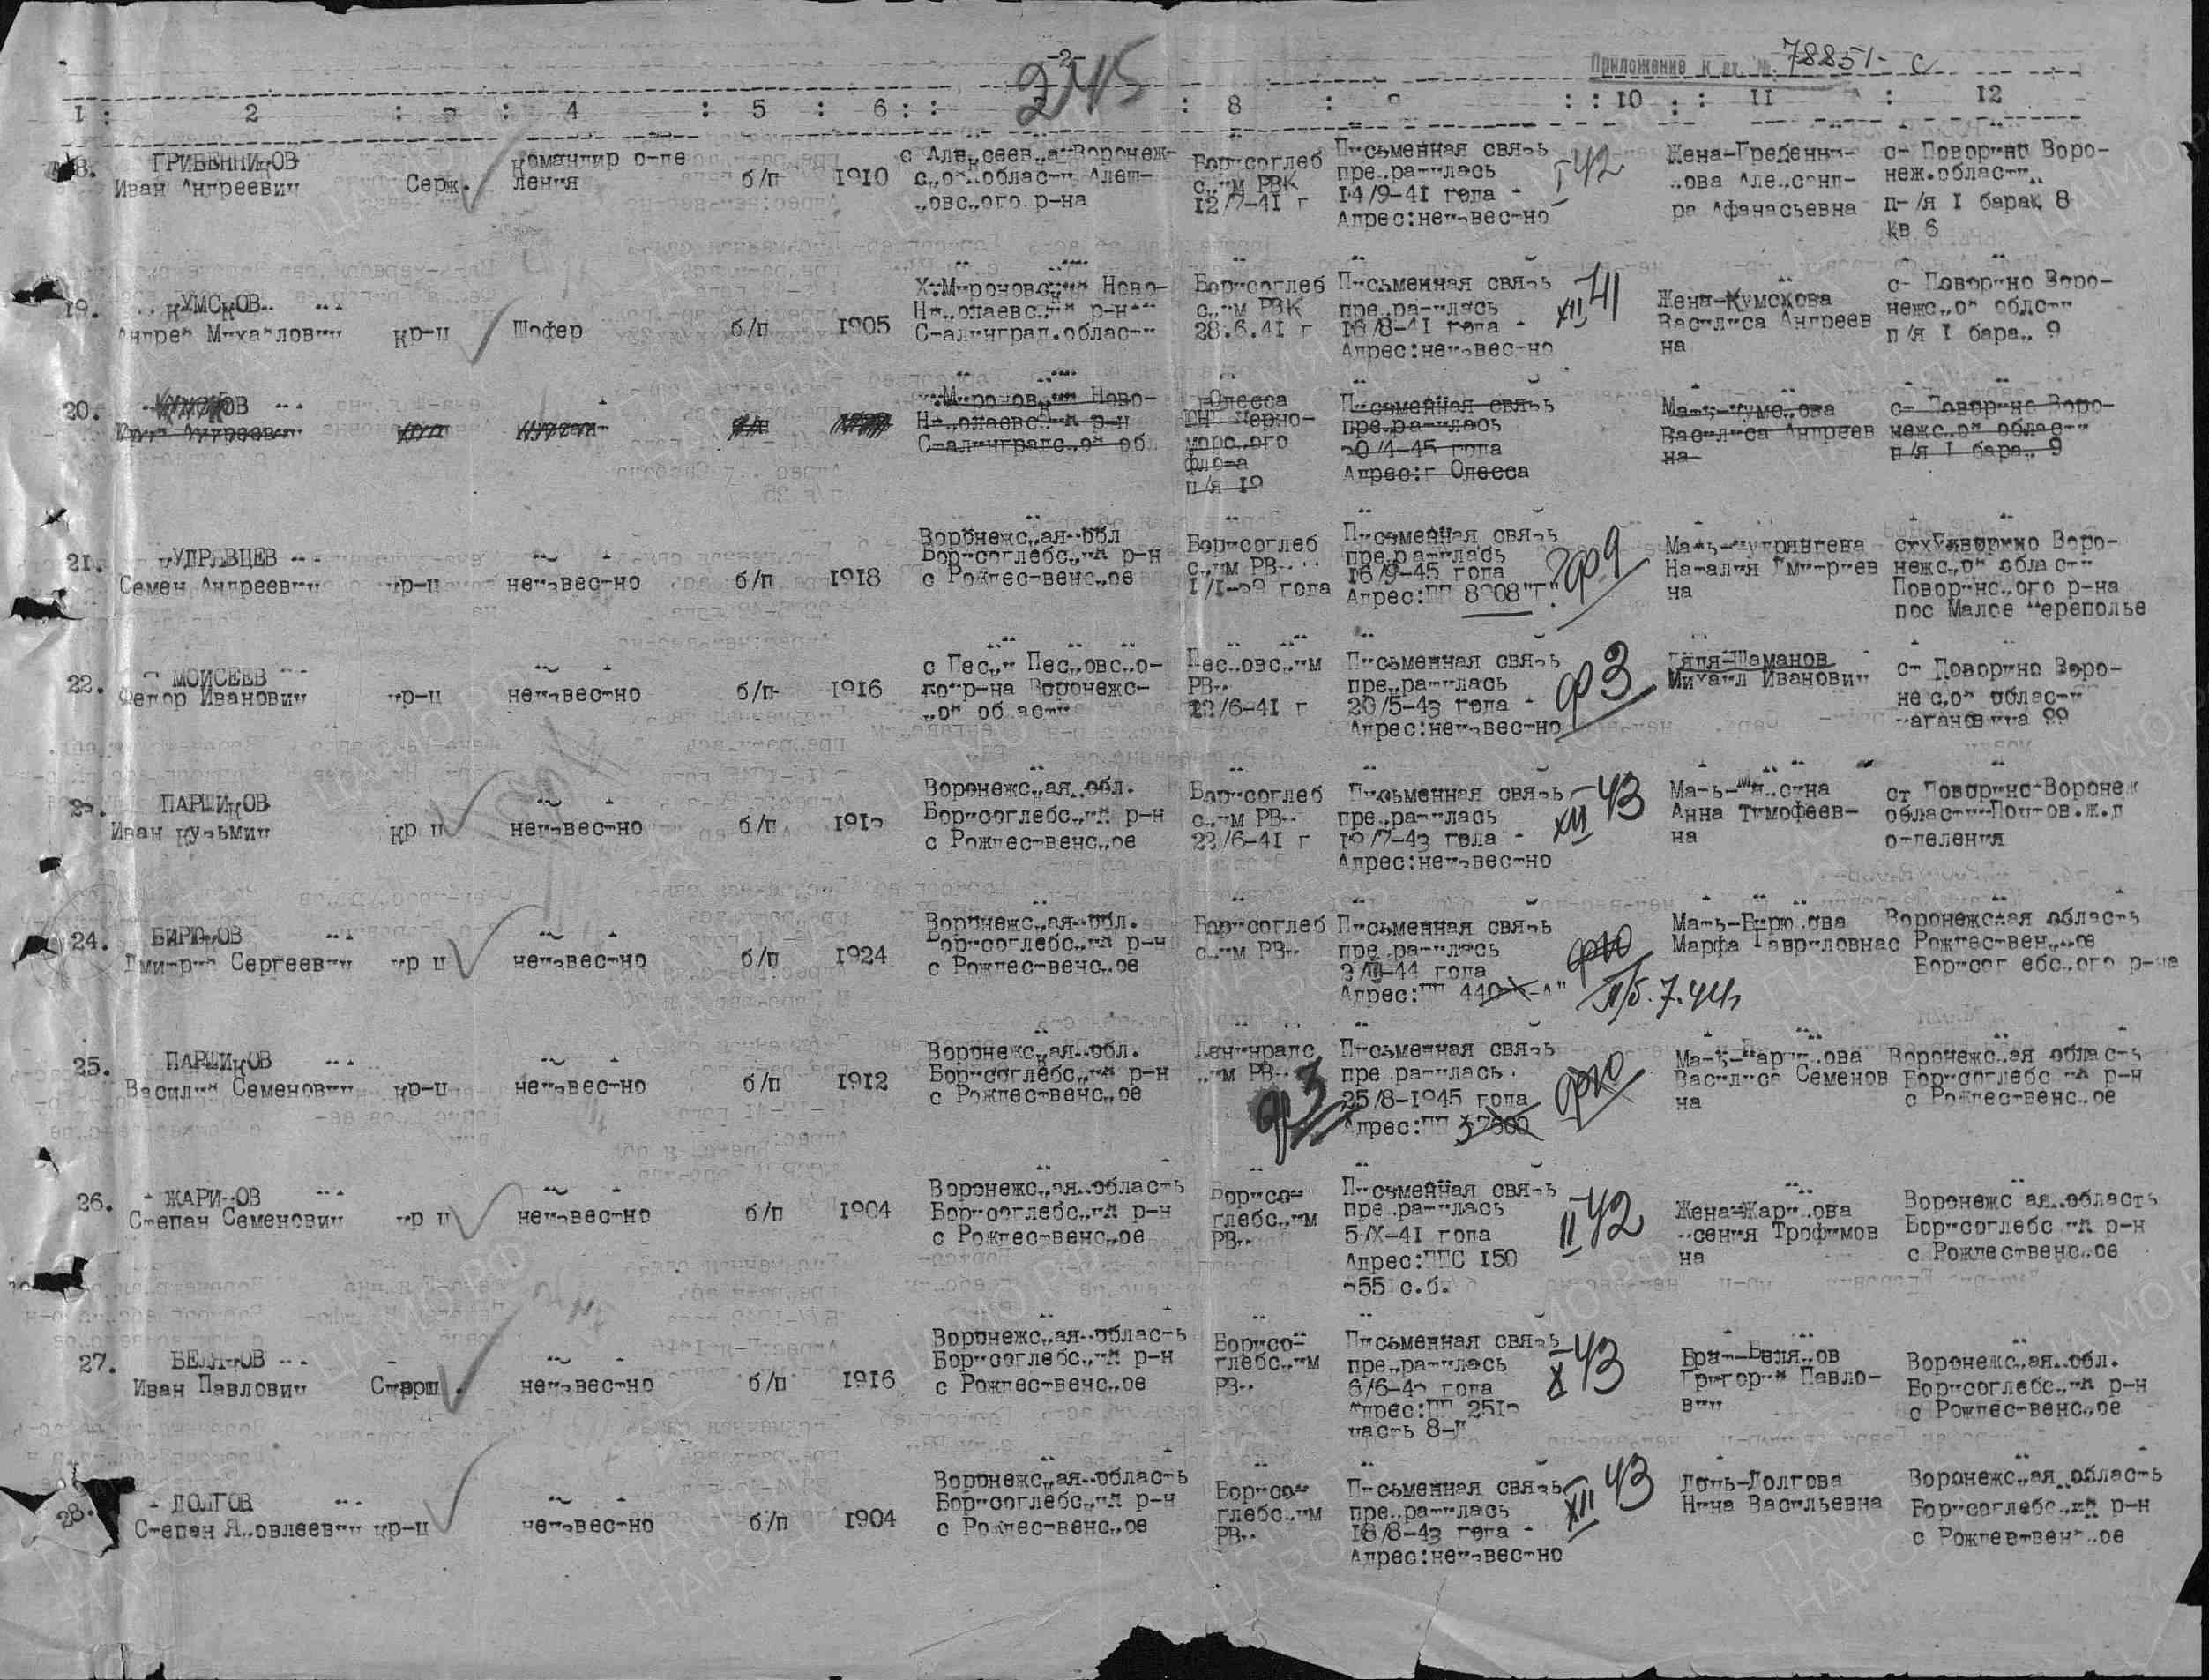 -2-
245
Приложение к вх. № 78851-с
1 : 2 : 3 : 4 : 5 : 6 : 8 : 10 : 11 : 12
ГРИБЕННИКОВ
Иван Андреевич
Серж.
Командир отде
ления
б/п
1910
с Алексеевка Воронеж-
ской области Алеш-
ковского р-на
Борисоглеб
ским РВК
12/7-41 г
Письменная связь
прекратилась
14/9-41 года
Адрес:неизвестно
I 42
Жена-Гребенни-
кова Александ-
ра Афанасьевна
ст Поворино Воро-
неж.области
п-/я I барак 8
кв 6
19.
КУМСКОВ
Андрей Михайлович
кр-ц
Шофер
б/п
1905
Х.Мироновский Ново-
Николаевский р-н
Сталинград.области
Борисоглеб
ским РВК
28.6.41 г
Письменная связь
прекратилась
18/8-41 года
Адрес:неизвестно
XII 41
Жена-Кумскова
Василиса Андреев
на
ст Поворино Воро-
нежской облсти
п/я I барак 9
20.
х.Мироновский Ново-
Николаевский р-н
Сталинградской об
г Одесса
Черно-
морского
флота
п/я 19
Письменная связь
прекратилась
20/4-45 года
Адрес:г Одесса
Мать-Кумскова
Василиса Андреев
на
ст Поворино Воро-
нежской области
п/я I барак 9
21.
КУДРЯВЦЕВ
Семен Андреевич
кр-ц
неизвестно
б/п
1918
Воронежская обл
Борисоглебский р-н
с Рождественское
Борисоглеб
ским РВК
1/1-39 года
Письменная связь
прекратилась
16/9-45 года
Адрес:ПП 8908"Г"
?ф9
Мать-Кудрявцева
Наталия Дмитриев
на
Поворино Воро-
нежской области
Поворинского р-на
пос Малое Череполье
22.
МОИСЕЕВ
Федор Иванович
кр-ц
неизвестно
б/п
1916
с Пески Песковско-
го р-на Воронежс-
кой области
Песковским
РВК
22/6-41 г
Письменная связь
прекратилась
20/5-43 года
Адрес:неизвестно
ф3
Дядя-Шаманов
Михаил Иванович
ст Поворино Воро-
нежской области
Кагановича 99
23.
ПАРШИКОВ
Иван Кузьмич
кр ц
неизвестно
б/п
Воронежская обл.
Борисоглебский р-н
с Рождественское
Борисоглеб
ским РВК
22/6-41 г
Письменная связь
прекратилась
19/7-43 года
Адрес:неизвестно
XII 43
Анна Тимофеев-
на
ст Поворино Воронеж
области Почтов.ж.д
отделения
24.
БИРЮКОВ
Дмитрий Сергеевич
кр ц
неизвестно
б/п
1924
Воронежская обл.
Борисоглебский р-н
с Рождественское
Борисоглеб
ским РВК
Письменная связь
прекратилась
2/III-44 года
Адрес:ПП
п/б. 7.44г
Мать-Бирюкова
Марфа Гавриловна
Воронежская область
с Рождественское
Борисоглебского р-на
25.
ПАРШИКОВ
Василий Семенович
кр-ц
неизвестно
б/п
1912
Воронежская обл.
Борисоглебский р-н
с Рождественское
Ленинградс
ким РВК
ф3
Письменная связь
прекратилась
25/8-1945 года
Адрес:ПП
Мать-Паршикова
Василиса Семенов
на
Воронежская область
Борисоглебский р-н
с Рождественское
26.
ЖАРИКОВ
Степан Семенович
кр ц
неизвестно
б/п
1904
Воронежская область
Борисоглебский р-н
с Рождественское
Борисо-
глебским
РВК
Письменная связь
прекратилась
5/X-41 года
Адрес:ППС 150
с.б.
II 42
Жена-Жарикова
Ксения Трофимов
на
Воронежская область
Борисоглебский р-н
с Рождественское
27.
БЕЛЯКОВ
Иван Павлович
Старш.
неизвестно
б/п
1916
Воронежская область
Борисоглебский р-н
с Рождественское
Борисо-
глебским
РВК
Письменная связь
прекратилась
6/6-43 года
Адрес:ПП
часть 8-Г
X 43
Брат-Беляков
Григорий Павло-
вич
Воронежская обл.
Борисоглебский р-н
с Рождественское
28.
ДОЛГОВ
Степан Яковлеевич
кр-ц
неизвестно
б/п
1904
Воронежская область
Борисоглебский р-н
с Рождественское
Борисо-
глебским
РВК
Письменная связь
прекратилась
18/8-43 года
Адрес:неизвестно
XII 43
Дочь-Долгова
Нина Васильевна
Воронежская область
Борисоглебский р-н
с Рождевтвенское